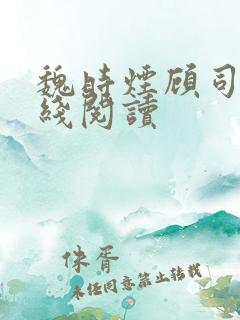 魏時煙顾司
綫閱讀
侎胥
未经同意禁止转载